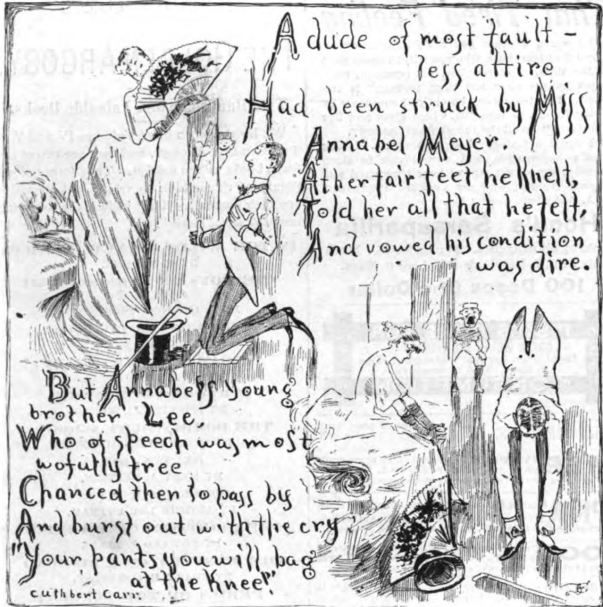 A dude of most fault-
less attire
Had been struck by Miss
Annabel Meyer.
At her fair feet he knelt,
Told her all that he felt,
And vowed his condition
was dire.
But Annabel's young
brother Lee,
Who of speech was most
wofully free
Chanced then to pass by
And burst out with the cry
"Your pants you will bag
at the Knee".
Cuthbert Carr.